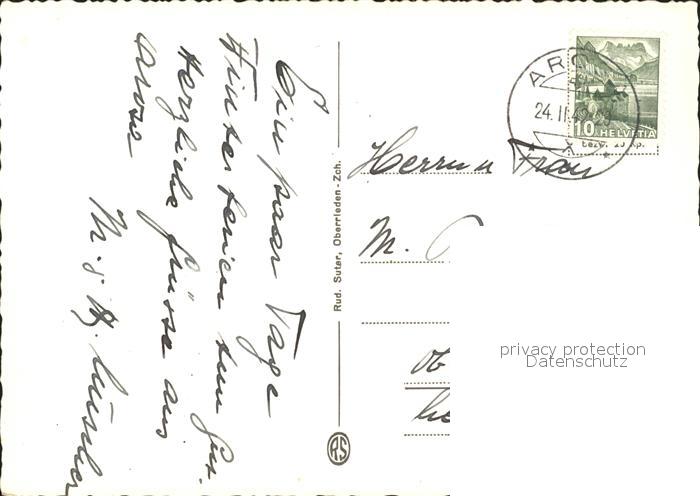 Ein paar Tage
Winterferien tun gut.
Herzliche Grüsse aus
Arosa
M. & H.
Rud. Suter, Oberrieden-Zch.
RS
ARO
24. II. 4
10 HELVETIA
bezw. 20 Rp.
Herrn u Frau
M.
ob
privacy protection
Datenschutz